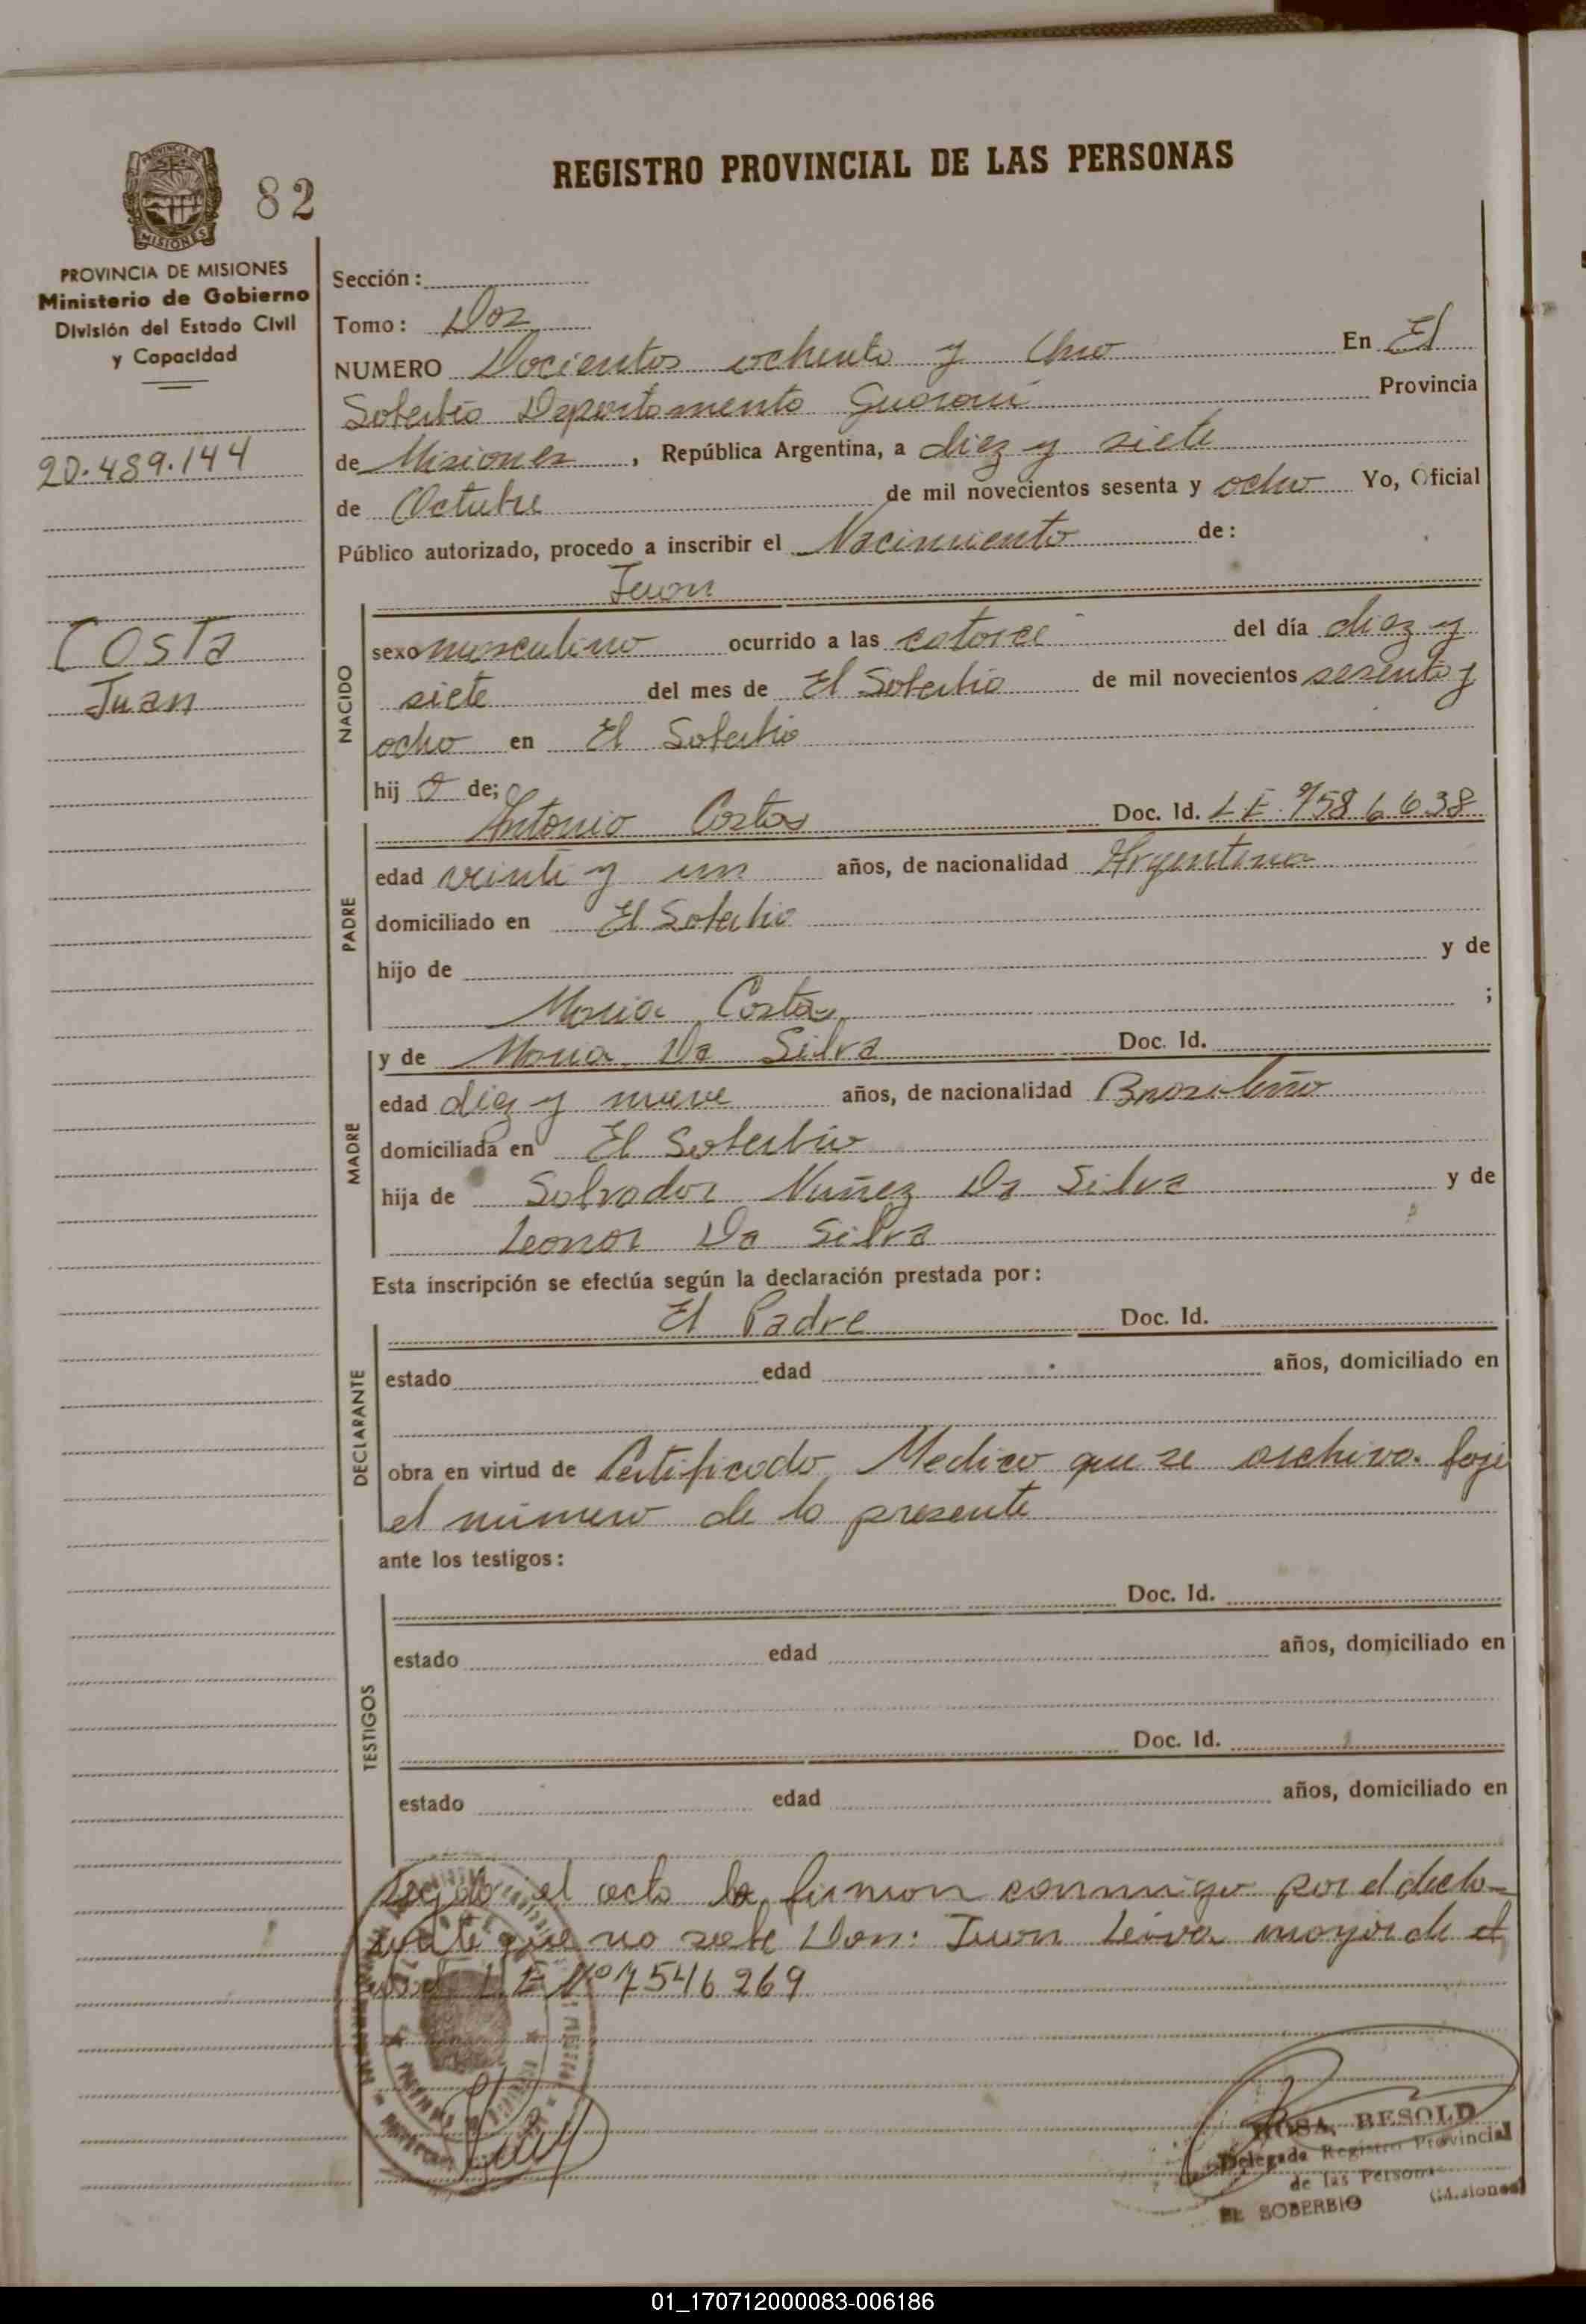 REGISTRO PROVINCIAL DE LAS PERSONAS
82
PROVINCIA DE MISIONES
MISIONES
PROVINCIA DE MISIONES
Ministerio de Gobierno
División del Estado Civil
y Capacidad
20.489.144
Costa
Juan
Sección:
Tomo: Dos
NUMERO Docientos ochenta y Uno En El
Soberbio Departamento Guarani Provincia
de Misiones, República Argentina, a diez y siete
de Octubre de mil novecientos sesenta y ocho Yo, Oficial
Público autorizado, procedo a inscribir el Nacimiento de:
Juan
NACIDO
sexo masculino ocurrido a las catorce del día diez y
siete del mes de El Soberbio de mil novecientos sesenta y
ocho en El Soberbio
hij o de;
PADRE
Antonio Costas Doc. Id. LE 7586638
edad veinti y un años, de nacionalidad Argentina
domiciliado en El Soberbio
hijo de y de
Maria Costas ;
MADRE
y de Maria Da Silva Doc. Id.
edad diez y nueve años, de nacionalidad Brasileño
domiciliada en El Soberbio
hija de Salvador Nuñez Da Silva y de
Leonor Da Silva
Esta inscripción se efectúa según la declaración prestada por:
DECLARANTE
El Padre Doc. Id.
estado edad años, domiciliado en
obra en virtud de Certificado Medico que se archiva. foje
el número de la presente
ante los testigos:
TESTIGOS
Doc. Id.
estado edad años, domiciliado en
Doc. Id.
estado edad años, domiciliado en
el acta la firman conmigo por el decla-
que no sabe Don: Juan Leiva mayor de
L E Nº 7546269
ROSA BESOLD
Delegada Registro Provincial
de las Personas
EL SOBERBIO (Misiones)
01_170712000083-006186